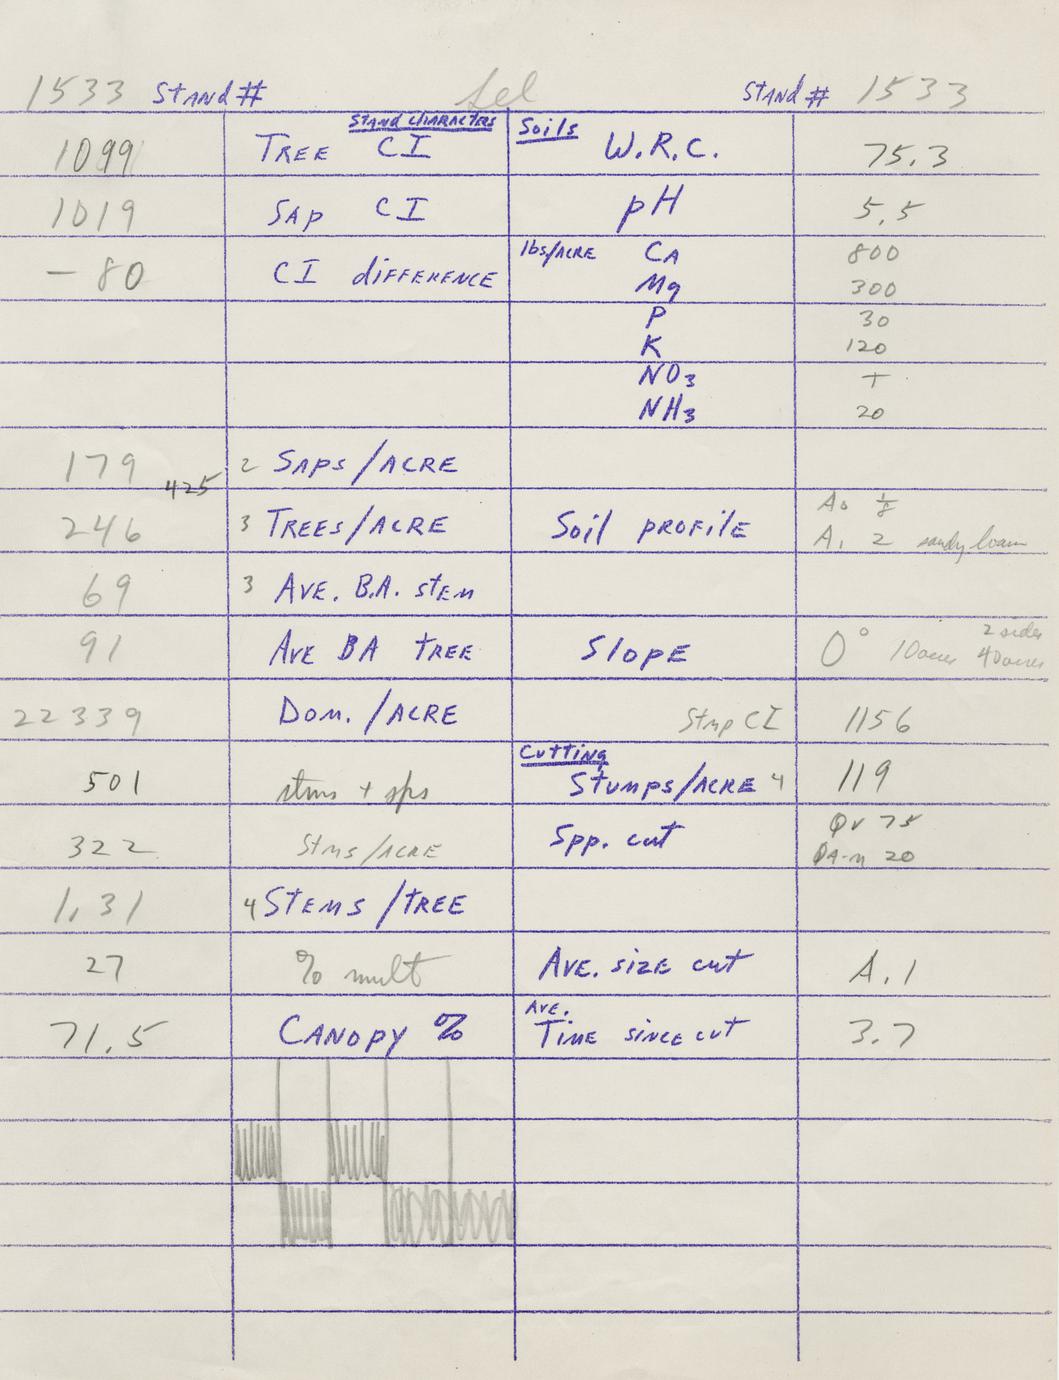 1533 Stand # Sel Stand # 1533
Stand Characters
1099 Tree CI
Soils
W.R.C. 75.3
1019 Sap CI pH 5.5
-80 CI difference
lbs/acre Ca 800
Mg 300
P 30
K 120
NO3 T
NH3 20
179 2 Saps/acre
425
246 3 Trees/acre
Soil profile A0 1/8
A1 2 sandy loam
69 3 Ave. B.A. stem
91 Ave BA tree
Slope 0° 10 acres 2 sides
40 acres
22339 Dom./acre
Stmp CI 1156
501 stms + sps
Cutting
Stumps/acre 4 119
322 Stms/acre
Spp. cut QV 75
QA-M 20
1.31 4 Stems/tree
27 % mult
Ave. size cut A.1
71.5 Canopy %
Ave.
Time since cut 3.7